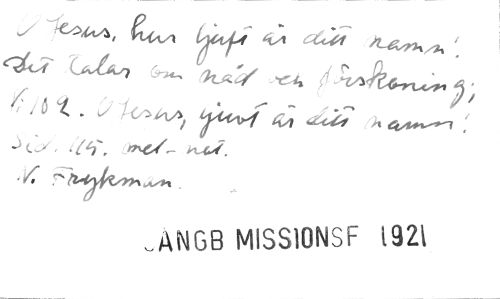 O Jesus, hur ljuft är ditt namn!
Det talar om nåd och förskoning;
V. 102. O Jesus, ljuvt är ditt namn!
Sid. 115. mel-not.
N. Frykman.
SÅNGB MISSIONSF 1921